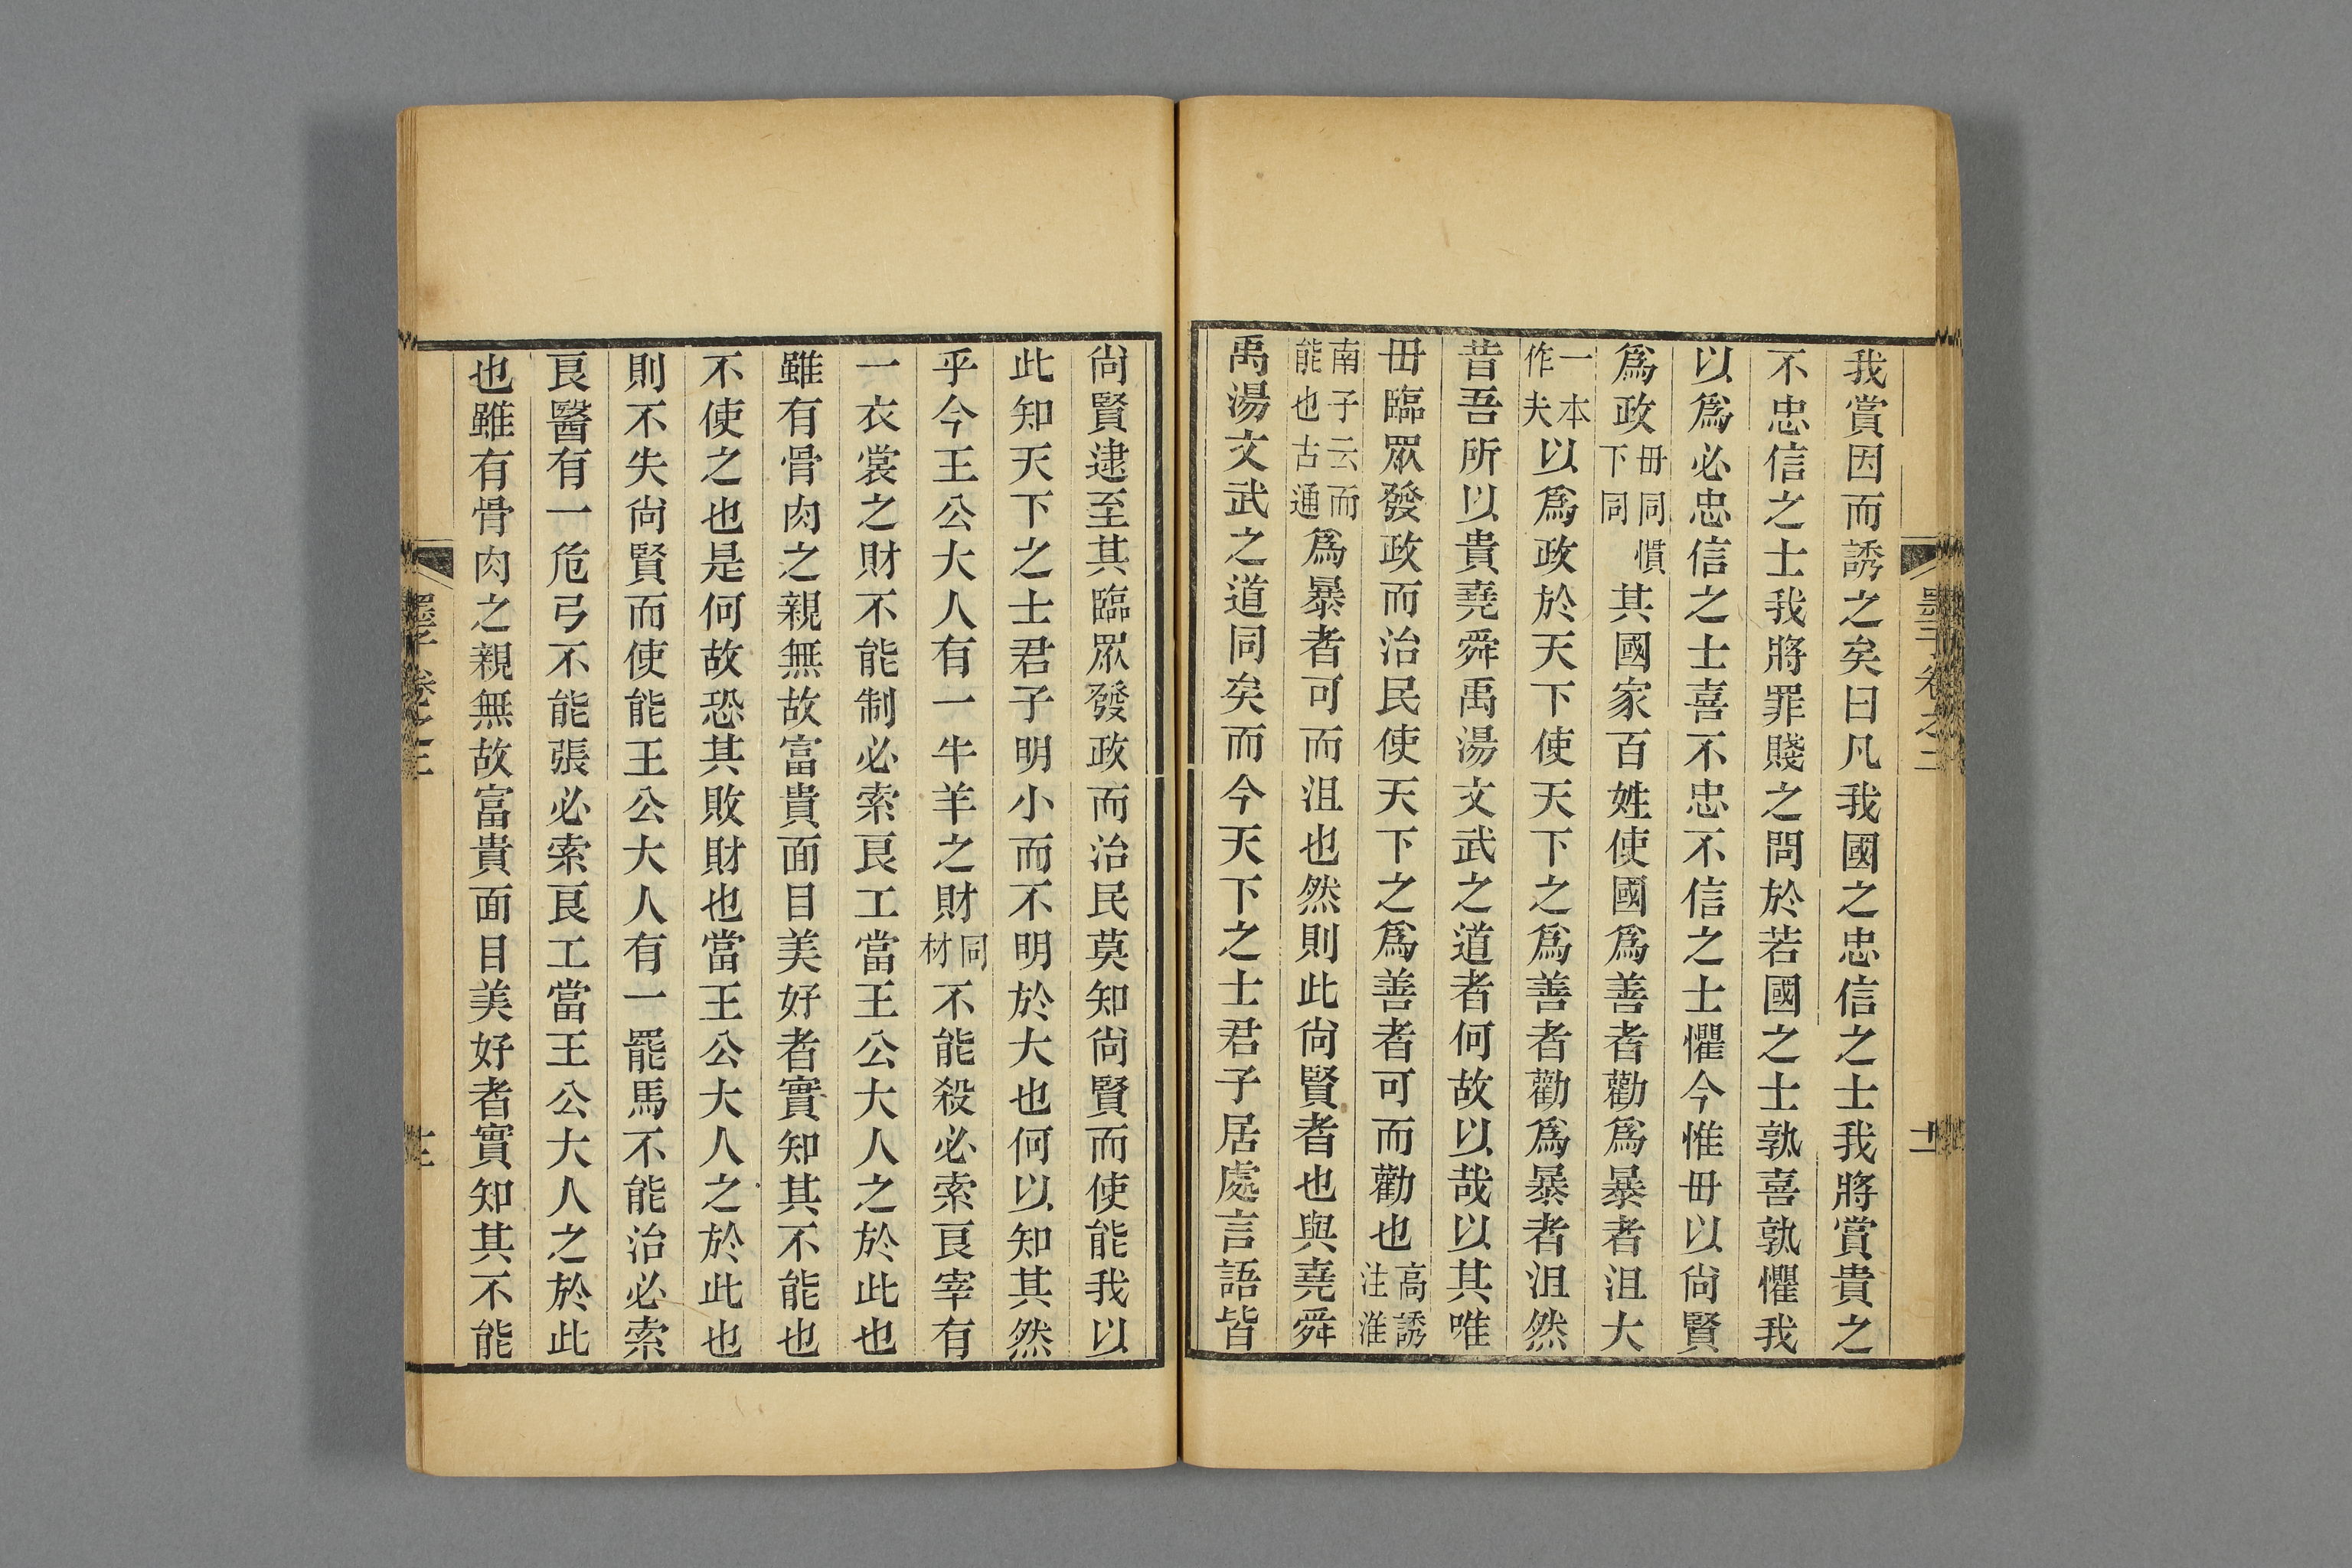 我賞因而誘之矣曰凡我國之忠信之士我將賞貴之
不忠信之士我將罪賤之問於若國之士孰喜孰懼我
以爲必忠信之士喜不忠不信之士懼今惟毋以尙賢
爲政毋同慣下同其國家百姓使國爲善者勸爲暴者沮大
一本作夫以爲政於天下使天下之爲善者勸爲暴者沮然
昔吾所以貴堯舜禹湯文武之道者何故以哉以其唯
毋臨眾發政而治民使天下之爲善者可而勸也高誘注淮
南子云而能也古通爲暴者可而沮也然則此尙賢者也與堯舜
禹湯文武之道同矣而今天下之士君子居處言語皆
尙賢逮至其臨眾發政而治民莫知尙賢而使能我以
此知天下之士君子明小而不明於大也何以知其然
乎今王公大人有一牛羊之財同材不能殺必索良宰有
一衣裳之財不能制必索良工當王公大人之於此也
雖有骨肉之親無故富貴面目美好者實知其不能也
不使之也是何故恐其敗財也當王公大人之於此也
則不失尙賢而使能王公大人有一罷馬不能治必索
良醫有一危弓不能張必索良工當王公大人之於此
也雖有骨肉之親無故富貴面目美好者實知其不能
墨子卷之二